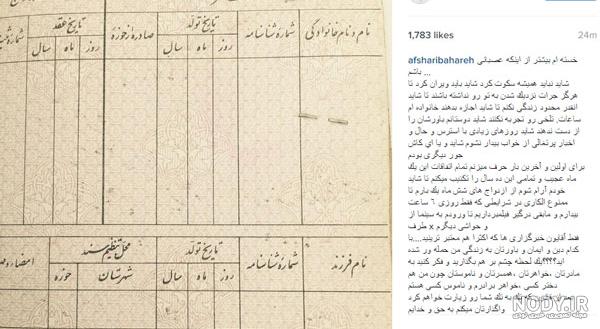 نام و نام خانوادگی
شماره شناسنامه
تاریخ تولد
روز
ماه
سال
صادره از حوزهٔ
تاریخ عقد
روز
ماه
سال
نام فرزند
شماره شناسنامه
تاریخ تولد
روز
ماه
سال
محل تنظیم سند
شهرستان
حوزه
1,783 likes
24m
afsharibahareh خسته ام بیشتر از اینکه عصبانی
باشم ...
شاید نباید همیشه سکوت کرد شاید باید ویران کرد تا
هرگز جرات نزدیك شدن به تو رو نداشته باشند تا شاید
انقدر محدود زندگی نکنم تا شاید اجازه بدهند خانواده ام
ساعات تلخی رو تجربه نکنند شاید دوستانم باورشان را
از دست ندهند شاید روزهای زیادی با استرس و حال و
اخبار پرتعالی از خواب بیدار نشوم شاید و یا ای کاش
جور دیگری بودم
برای اولین و آخرین بار حرف میزنم تمام اتفاقات این یك
ماه عجیب و تمامی این ده سال را تکذیب میکنم تا شاید
خودم آرام شوم از ازدواج های شش ماه یك بارم تا
ممنوع الکاری در شرایطی که فقط روزی ٦ ساعت
بیدارم و مابقی درگیر فیلمبرداریم تا ورودم به سینما از
طرف x و حواشی دیگرم
فقط آقایون خبرگزاری ها که اکثرا هم معتبر ترینید....با
کدام دین و ایمان و باورتان به زندگی من حمله ور شده
اید؟؟؟؟یك لحظه چشم بر هم بگذارید و فکر کنید به
مادرتان ،خواهرتان ،همسرتان و ناموستان چون من هم
دختر کسی ،خواهر برادرم و ناموس کسی هستم
که یك به تك شما رو زیارت خواهم کرد
واگذارتان میکنم به حق و خدایم
NODY.IR